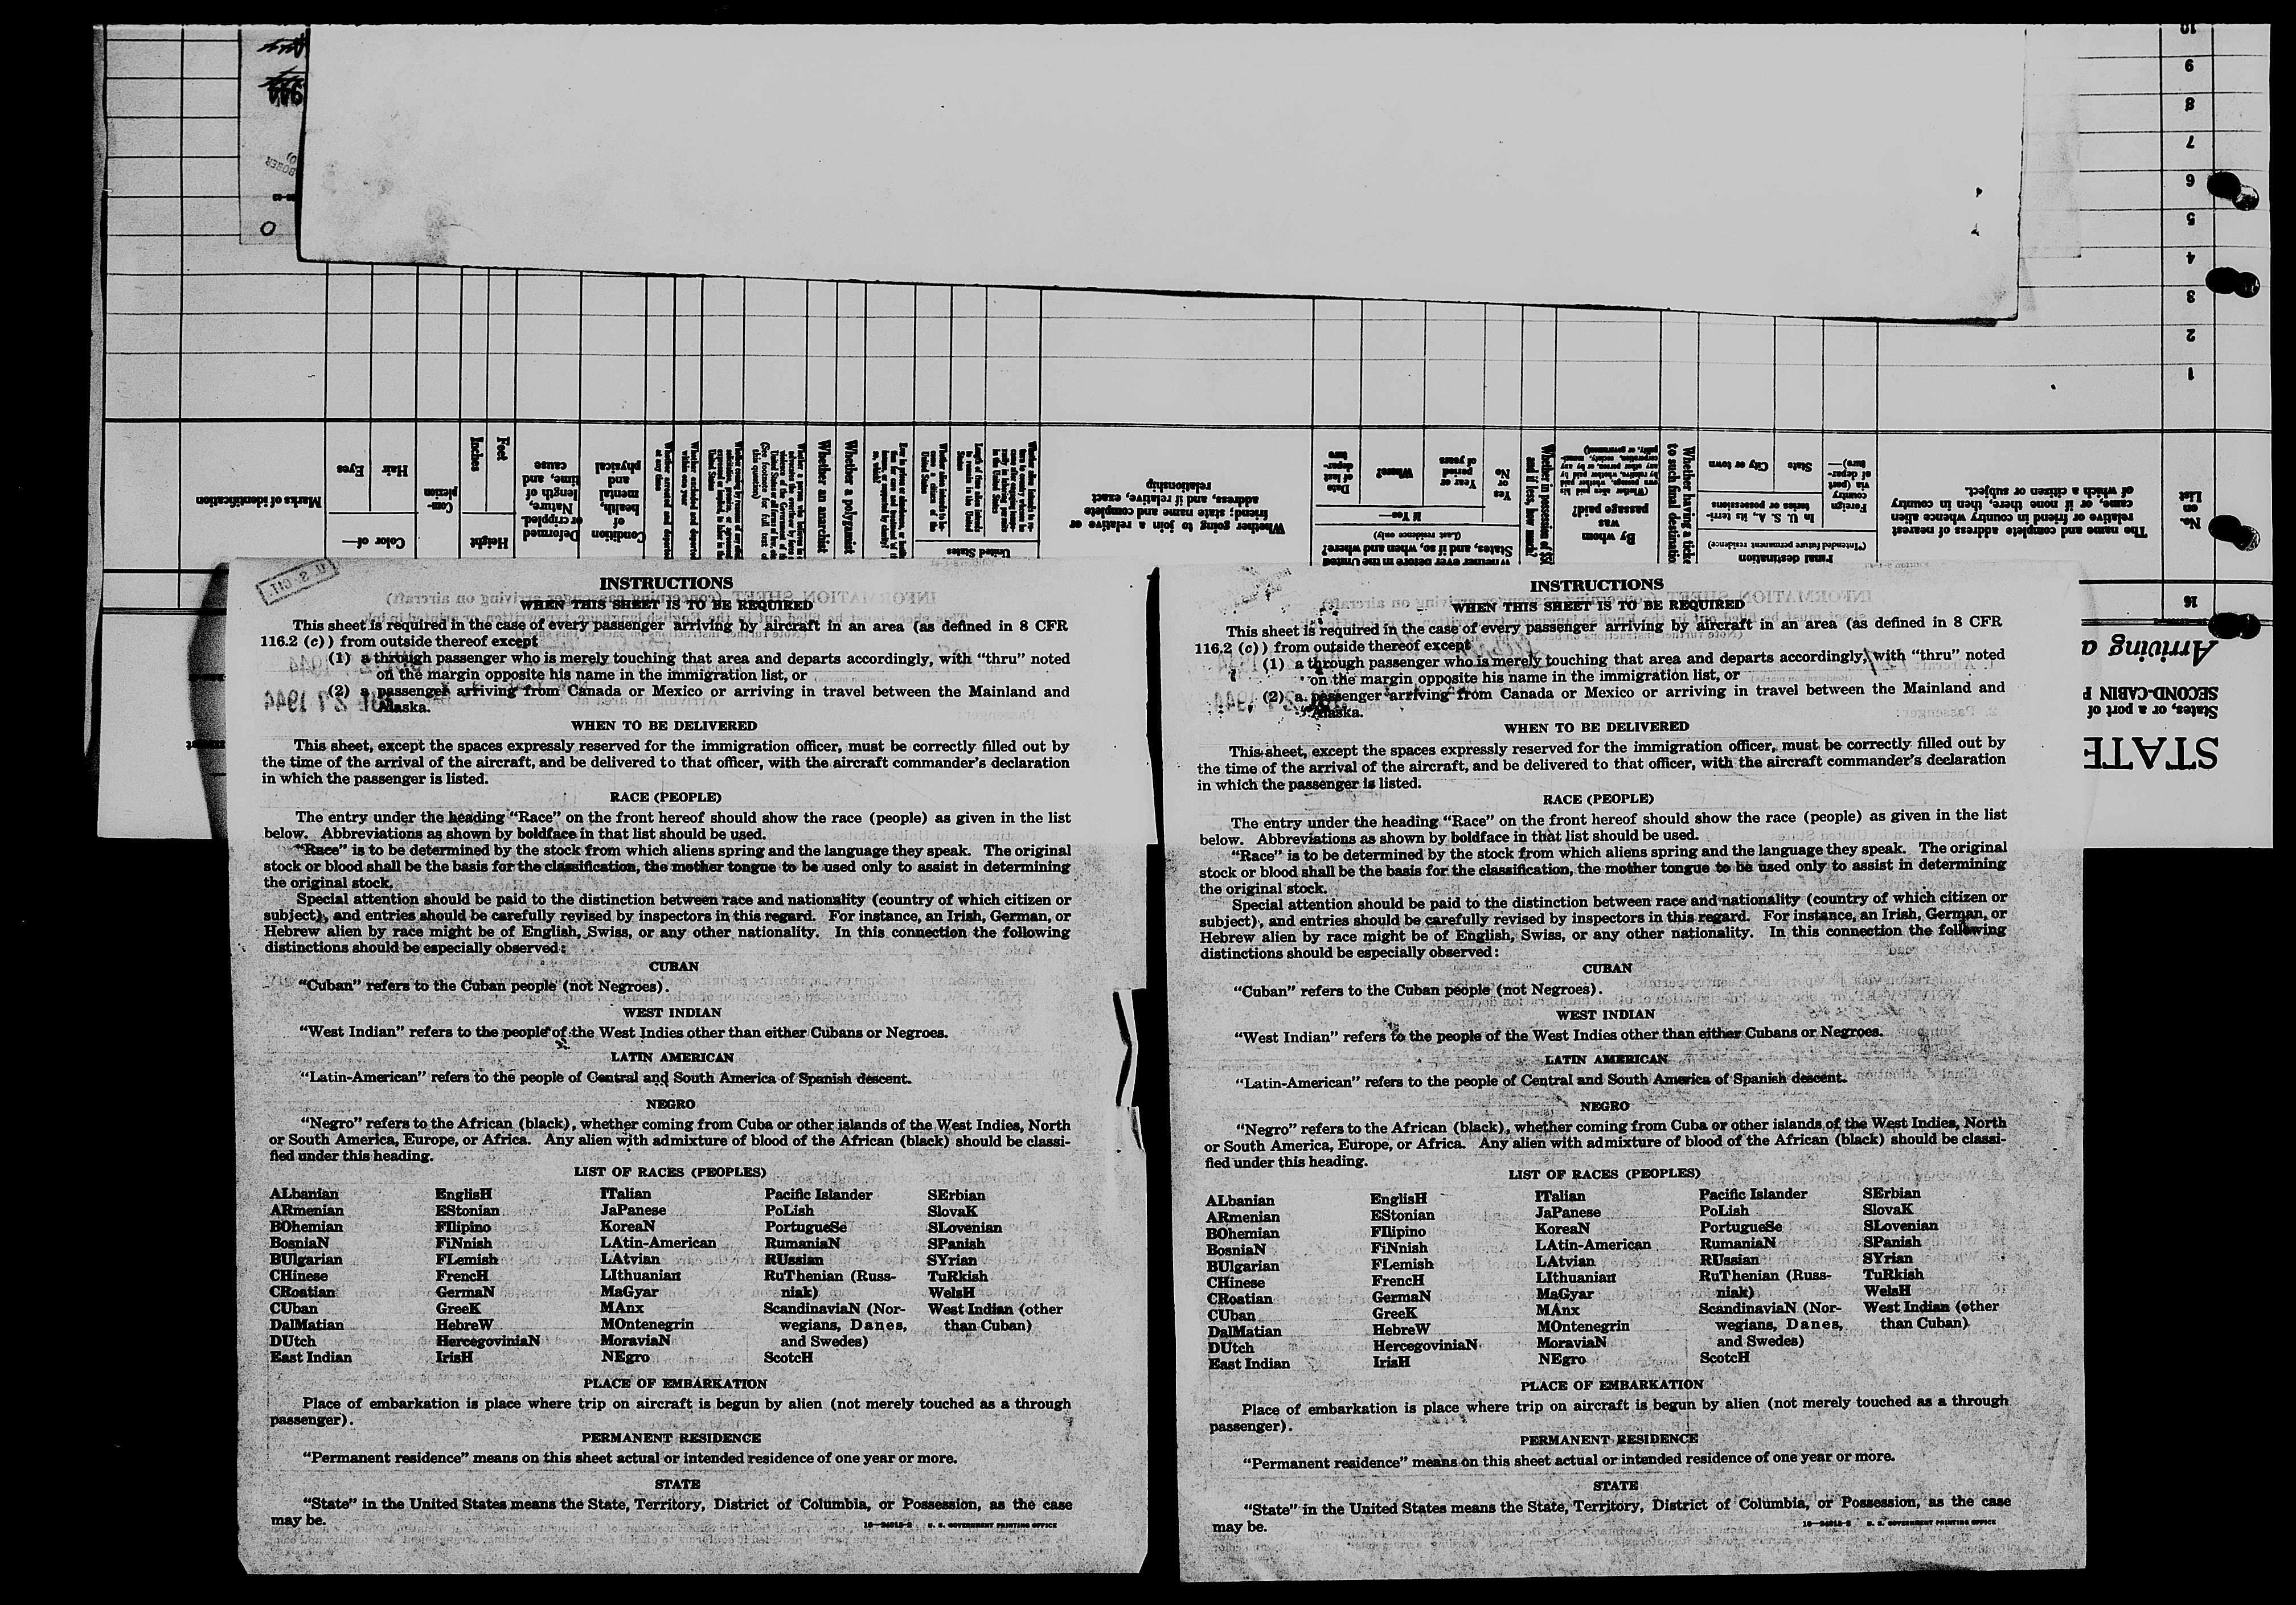 10
9
8
7
6
5
4
3
2
1
Marks of identification
Color of—
Hair
Eyes
Com-
plexion
Height
Feet
Inches
Deformed
or crippled.
Nature,
length of
time, and
cause
Condition
of
health,
mental
and
physical
Whether an anarchist
Whether a polygamist
United States
Whether going to join a relative or
friend; state name and complete
address, and if relative, exact
relationship
Whether ever before in the United
States, and if so, when and where?
(Last residence only)
If Yes—
Yes
or
No
Year or
period
of years
Where?
Date
of last
depar-
ture
By whom
was
passage paid?
Final destination
(*Intended future permanent residence)
In U. S. A., its terri-
tories or possessions
Foreign
country
via (port
of depar-
ture)—
State
City or town
The name and complete address of nearest
relative or friend in country whence alien
came, or if none there, then in country
of which a citizen or subject.
No.
on
List
16
Arriving a
SECOND-CABIN P
States, or a port of
STATE
INSTRUCTIONS
WHEN THIS SHEET IS TO BE REQUIRED
This sheet is required in the case of every passenger arriving by aircraft in an area (as defined in 8 CFR
116.2 (c)) from outside thereof except
(1) a through passenger who is merely touching that area and departs accordingly, with “thru” noted
on the margin opposite his name in the immigration list, or
(2) a passenger arriving from Canada or Mexico or arriving in travel between the Mainland and
Alaska.
WHEN TO BE DELIVERED
This sheet, except the spaces expressly reserved for the immigration officer, must be correctly filled out by
the time of the arrival of the aircraft, and be delivered to that officer, with the aircraft commander’s declaration
in which the passenger is listed.
RACE (PEOPLE)
The entry under the heading “Race” on the front hereof should show the race (people) as given in the list
below. Abbreviations as shown by boldface in that list should be used.
“Race” is to be determined by the stock from which aliens spring and the language they speak. The original
stock or blood shall be the basis for the classification, the mother tongue to be used only to assist in determining
the original stock.
Special attention should be paid to the distinction between race and nationality (country of which citizen or
subject), and entries should be carefully revised by inspectors in this regard. For instance, an Irish, German, or
Hebrew alien by race might be of English, Swiss, or any other nationality. In this connection the following
distinctions should be especially observed:
CUBAN
“Cuban” refers to the Cuban people (not Negroes).
WEST INDIAN
“West Indian” refers to the people of the West Indies other than either Cubans or Negroes.
LATIN AMERICAN
“Latin-American” refers to the people of Central and South America of Spanish descent.
NEGRO
“Negro” refers to the African (black), whether coming from Cuba or other islands of the West Indies, North
or South America, Europe, or Africa. Any alien with admixture of blood of the African (black) should be classi-
fied under this heading.
LIST OF RACES (PEOPLES)
ALbanian
ARmenian
BOhemian
BosniaN
BUlgarian
CHinese
CRoatian
CUban
DalMatian
DUtch
East Indian
EnglisH
EStonian
FIlipino
FiNnish
FLemish
FrencH
GermaN
GreeK
HebreW
HercegoviniaN
IrisH
ITalian
JaPanese
KoreaN
LAtin-American
LAtvian
LIthuanian
MaGyar
MAnx
MOntenegrin
MoraviaN
NEgro
Pacific Islander
PoLish
PortugueSe
RumaniaN
RUssian
RuThenian (Russ-
niak)
ScandinaviaN (Nor-
wegians, Danes,
and Swedes)
ScotcH
SErbian
SlovaK
SLovenian
SPanish
SYrian
TuRkish
WelsH
West Indian (other
than Cuban)
PLACE OF EMBARKATION
Place of embarkation is place where trip on aircraft is begun by alien (not merely touched as a through
passenger).
PERMANENT RESIDENCE
“Permanent residence” means on this sheet actual or intended residence of one year or more.
STATE
“State” in the United States means the State, Territory, District of Columbia, or Possession, as the case
may be.
16—24015-2 U. S. GOVERNMENT PRINTING OFFICE
INSTRUCTIONS
WHEN THIS SHEET IS TO BE REQUIRED
This sheet is required in the case of every passenger arriving by aircraft in an area (as defined in 8 CFR
116.2 (c)) from outside thereof except
(1) a through passenger who is merely touching that area and departs accordingly, with “thru” noted
on the margin opposite his name in the immigration list, or
(2) a passenger arriving from Canada or Mexico or arriving in travel between the Mainland and
Alaska.
WHEN TO BE DELIVERED
This sheet, except the spaces expressly reserved for the immigration officer, must be correctly filled out by
the time of the arrival of the aircraft, and be delivered to that officer, with the aircraft commander’s declaration
in which the passenger is listed.
RACE (PEOPLE)
The entry under the heading “Race” on the front hereof should show the race (people) as given in the list
below. Abbreviations as shown by boldface in that list should be used.
“Race” is to be determined by the stock from which aliens spring and the language they speak. The original
stock or blood shall be the basis for the classification, the mother tongue to be used only to assist in determining
the original stock.
Special attention should be paid to the distinction between race and nationality (country of which citizen or
subject), and entries should be carefully revised by inspectors in this regard. For instance, an Irish, German, or
Hebrew alien by race might be of English, Swiss, or any other nationality. In this connection the following
distinctions should be especially observed:
CUBAN
“Cuban” refers to the Cuban people (not Negroes).
WEST INDIAN
“West Indian” refers to the people of the West Indies other than either Cubans or Negroes.
LATIN AMERICAN
“Latin-American” refers to the people of Central and South America of Spanish descent.
NEGRO
“Negro” refers to the African (black), whether coming from Cuba or other islands of the West Indies, North
or South America, Europe, or Africa. Any alien with admixture of blood of the African (black) should be classi-
fied under this heading.
LIST OF RACES (PEOPLES)
ALbanian
ARmenian
BOhemian
BosniaN
BUlgarian
CHinese
CRoatian
CUban
DalMatian
DUtch
East Indian
EnglisH
EStonian
FIlipino
FiNnish
FLemish
FrencH
GermaN
GreeK
HebreW
HercegoviniaN
IrisH
ITalian
JaPanese
KoreaN
LAtin-American
LAtvian
LIthuanian
MaGyar
MAnx
MOntenegrin
MoraviaN
NEgro
Pacific Islander
PoLish
PortugueSe
RumaniaN
RUssian
RuThenian (Russ-
niak)
ScandinaviaN (Nor-
wegians, Danes,
and Swedes)
ScotcH
SErbian
SlovaK
SLovenian
SPanish
SYrian
TuRkish
WelsH
West Indian (other
than Cuban)
PLACE OF EMBARKATION
Place of embarkation is place where trip on aircraft is begun by alien (not merely touched as a through
passenger).
PERMANENT RESIDENCE
“Permanent residence” means on this sheet actual or intended residence of one year or more.
STATE
“State” in the United States means the State, Territory, District of Columbia, or Possession, as the case
may be.
16—24015-2 U. S. GOVERNMENT PRINTING OFFICE